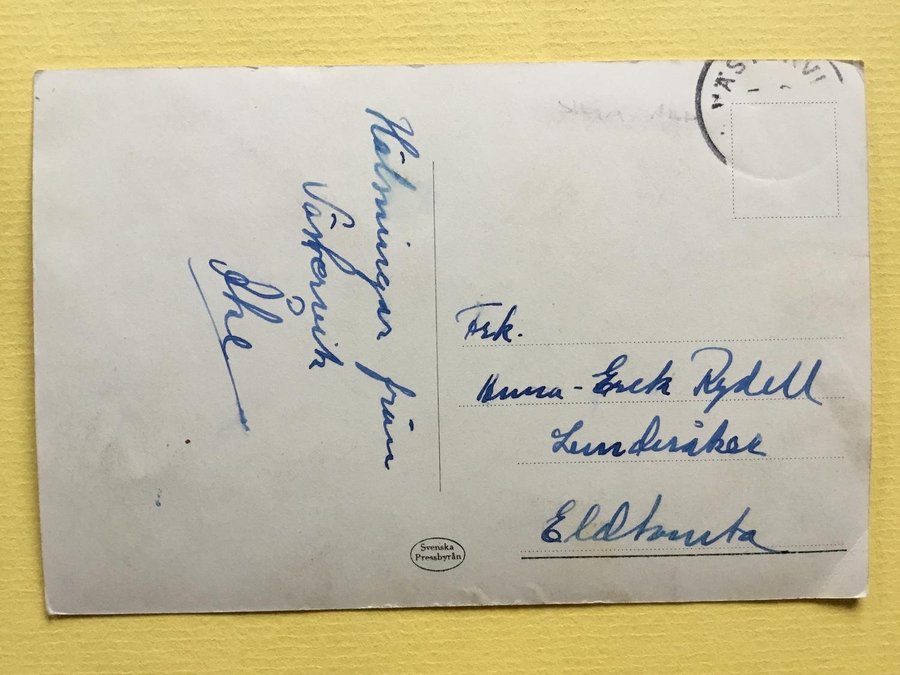 Hälsningar från
Västervik
Åke
Frk.
Anna-Greta Rydell
Lunderåker
Eldtomta
Svenska
Pressbyrån